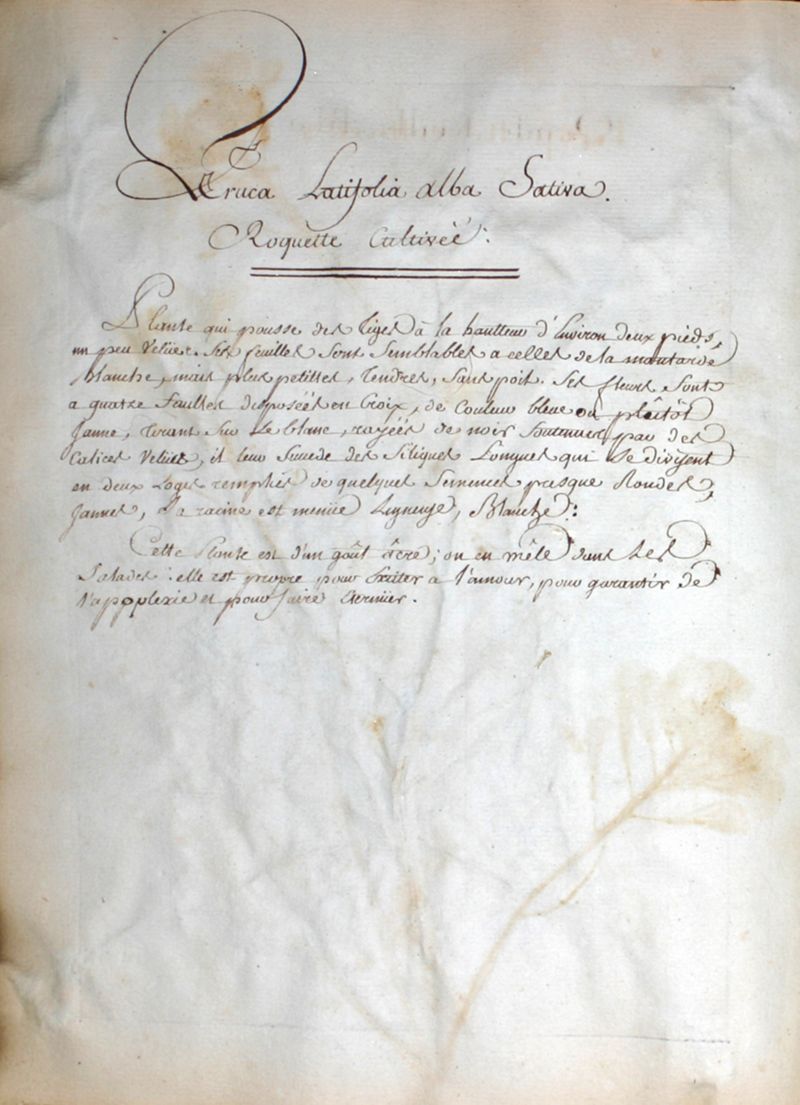 Eruca Latifolia alba Sativa.
Roquette Cultivéé.
Plante qui pousse des Tiges à la hautteur d'Environ deux pieds,
un peu Velües. Ses feuilles sont Semblables a celles de la moutarde
blanche, mais plus petittes, Tendres, Sans poil. Ses fleurs sont
a quatre feuilles disposéés en Croix, de Couleur bleue ou plûtôt
Jaune, tirant sur le blanc, rayéés de noir Soutenues par des
Calices Velües, il leur succede des Siliques Longues qui se divisent
en deux Loges remplies de quelques Semences presque Rondes,
Jaunes, Sa racine est menüe Ligneuse, Blanche.
Cette Plante est d'un goût âcre; on en mêle dans Les
Salades: elle est propre pour Exciter a l'amour, pour garantir de
l'appoplexie et pour faire Eternüer.